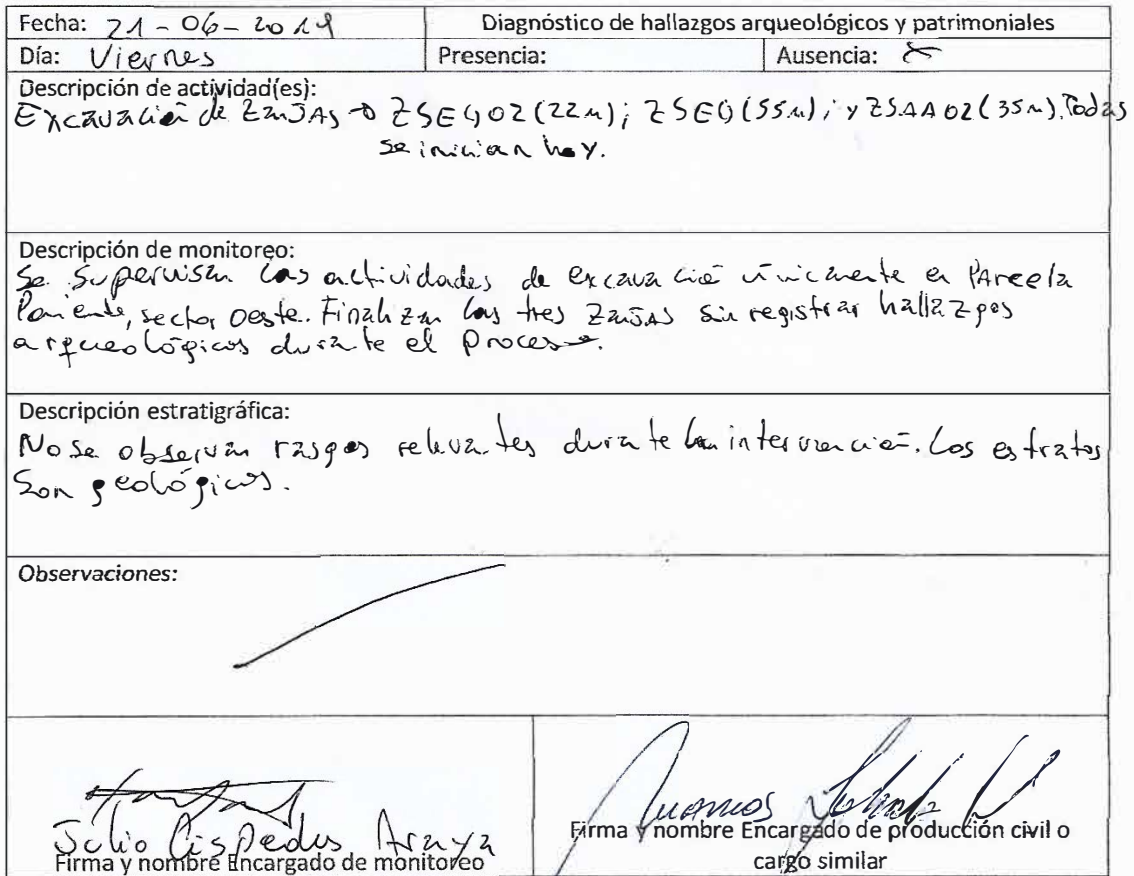 Fecha: 21-06-2019 Diagnóstico de hallazgos arqueológicos y patrimoniales
Día: Viernes Presencia: Ausencia: X
Descripción de actividad(es):
Excavación de Zanjas → ZSEQ02 (22m); ZSEQ (55m); y ZSAA02 (35m). Todas
se inician hoy.
Descripción de monitoreo:
Se supervisan las actividades de excavación únicamente en Parcela
Poniente, sector oeste. Finalizan las tres zanjas sin registrar hallazgos
arqueológicos durante el proceso.
Descripción estratigráfica:
No se observan rasgos relevantes durante la intervención. Los estratos
son geológicos.
Observaciones:
Julio Araya
Firma y nombre Encargado de monitoreo
Firma y nombre Encargado de producción civil o
cargo similar